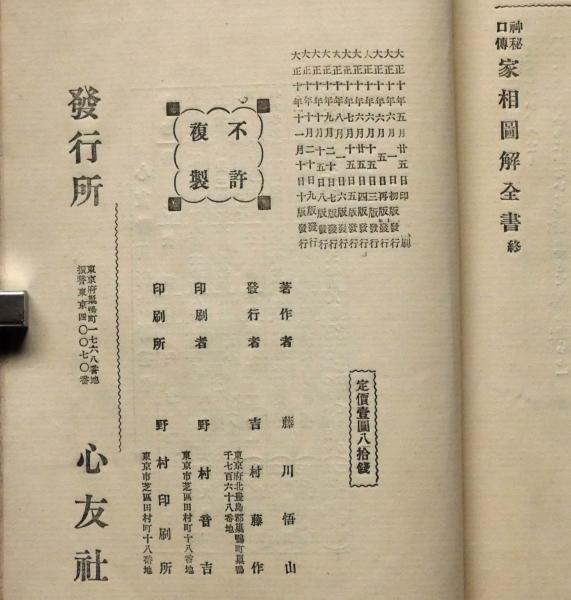 神秘
口傳
家相圖解全書 終
大正十年五月廿五日印刷
大正十年六月一日初版發行
大正十年六月五日再版發行
大正十年六月十五日三版發行
大正十年六月廿五日四版發行
大正十年七月十五日五版發行
大正十年八月一日六版發行
大正十年九月二十日七版發行
大正十年十一月十日十版發行
定價壹圓八拾錢
不許
複製
著作者 藤川悟山
發行者 吉村藤作
東京府北豊島郡巢鴨町巢鴨
千七百六十八番地
印刷者 野村音吉
東京市芝區田村町十八番地
印刷所 野村印刷所
東京市芝區田村町十八番地
發行所 心友社
東京府巢鴨町一七六八番地
振替東京四〇〇七〇番